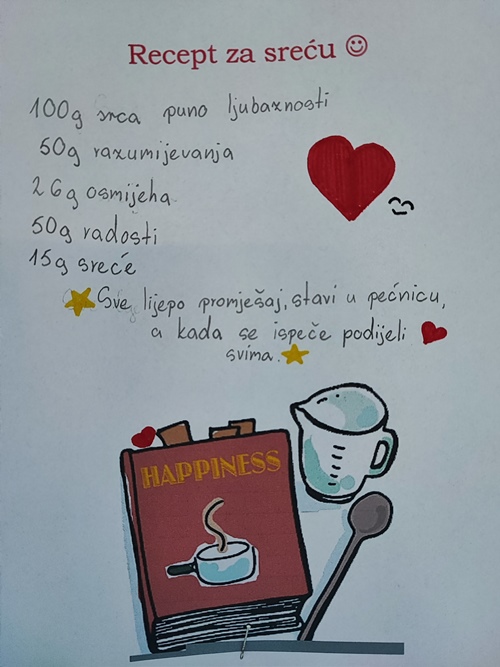 Recept za sreću ☺
100g srca puno ljubaznosti
50g razumijevanja
26g osmijeha
50g radosti
15g sreće
Sve lijepo promješaj, stavi u pećnicu,
a kada se ispeče podijeli
svima.
HAPPINESS